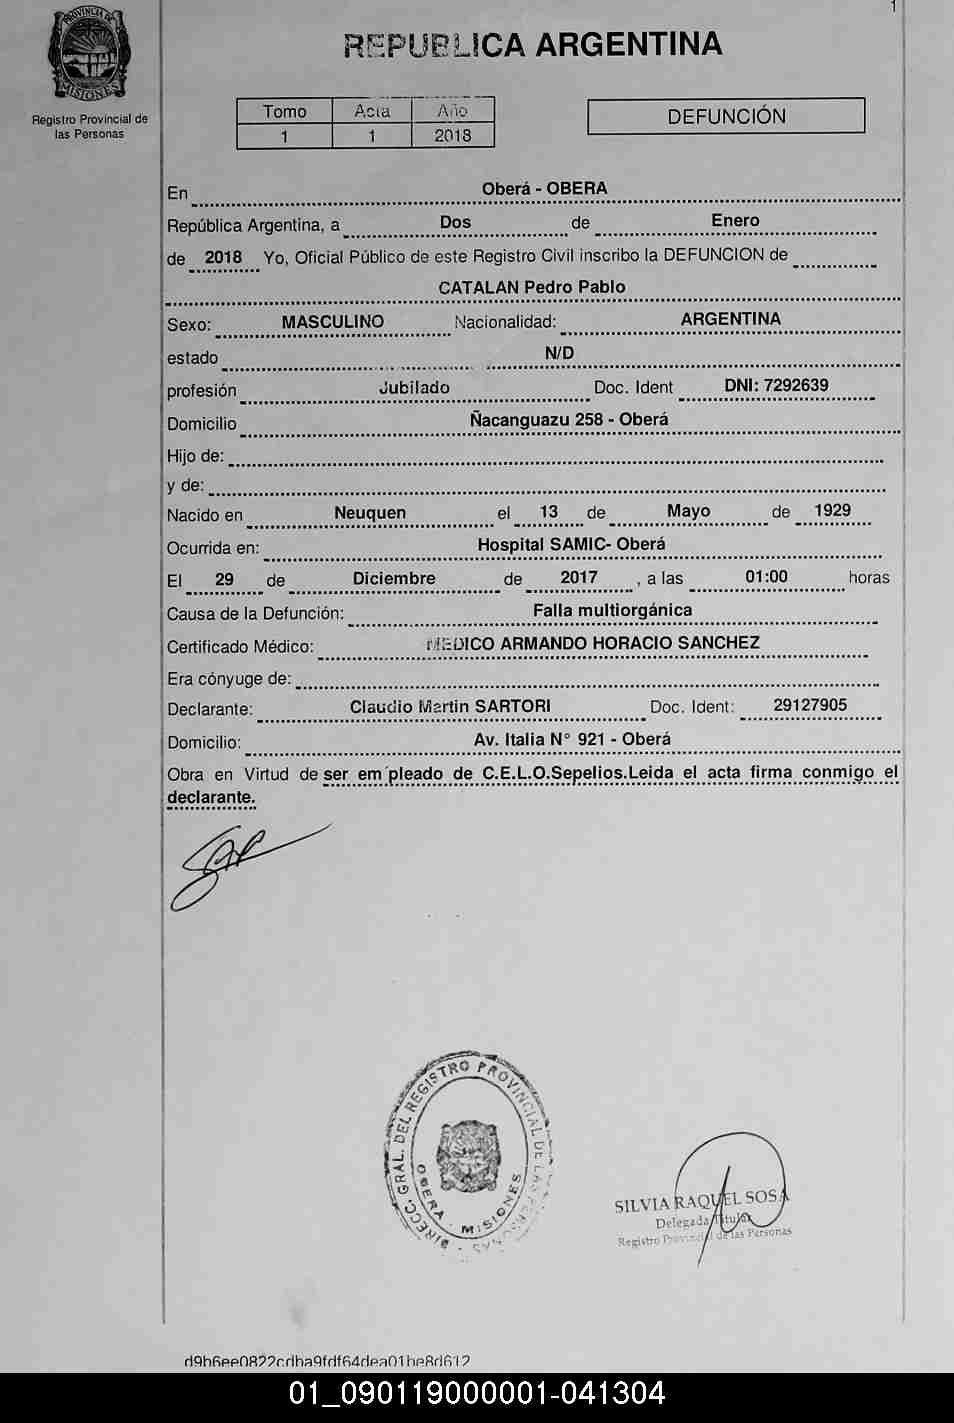 1
PROVINCIA DE
MISIONES
Registro Provincial de
las Personas
REPUBLICA ARGENTINA
Tomo Acta Año
1 1 2018
DEFUNCIÓN
En Oberá - OBERA
República Argentina, a Dos de Enero
de 2018 Yo, Oficial Público de este Registro Civil inscribo la DEFUNCION de
CATALAN Pedro Pablo
Sexo: MASCULINO Nacionalidad: ARGENTINA
estado N/D
profesión Jubilado Doc. Ident DNI: 7292639
Domicilio Ñacanguazu 258 - Oberá
Hijo de:
y de:
Nacido en Neuquen el 13 de Mayo de 1929
Ocurrida en: Hospital SAMIC- Oberá
El 29 de Diciembre de 2017 , a las 01:00 horas
Causa de la Defunción: Falla multiorgánica
Certificado Médico: MEDICO ARMANDO HORACIO SANCHEZ
Era cónyuge de:
Declarante: Claudio Martin SARTORI Doc. Ident: 29127905
Domicilio: Av. Italia N° 921 - Oberá
Obra en Virtud de ser em pleado de C.E.L.O.Sepelios.Leida el acta firma conmigo el
declarante.
DIRECC. GRAL. DEL REGISTRO PROVINCIAL DE LAS PERSONAS
OBERA - MISIONES
SILVIA RAQUEL SOSA
Delegada Titular
Registro Provincial de las Personas
d9b6ee0822cdba9fdf64dea01be8d612
01_090119000001-041304